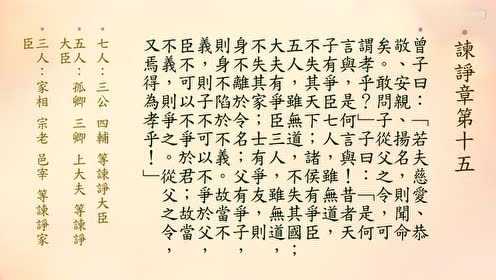 諫諍章第十五
曾子曰：「若夫慈愛、恭
敬、安親、揚名，則聞命
矣。敢問子從父之令，可
謂孝乎？」子曰：「是何
言與，是何言與！昔者天
子有爭臣七人，雖無道，
不失其天下；諸侯有爭臣
五人，雖無道，不失其國；
大夫有爭臣三人，雖無道，
不失其家；士有爭友，則
身不離於令名；父有爭子，
則身不陷於不義。故當不
義，則子不可以不爭於父，
臣不可以不爭於君；故當
不義，則爭之。從父之令，
又焉得為孝乎！」
七人：三公 四輔 等諫諍大臣
五人：孤卿 三卿 上大夫 等諫諍
大臣
三人：家相 宗老 邑宰 等諫諍家
臣